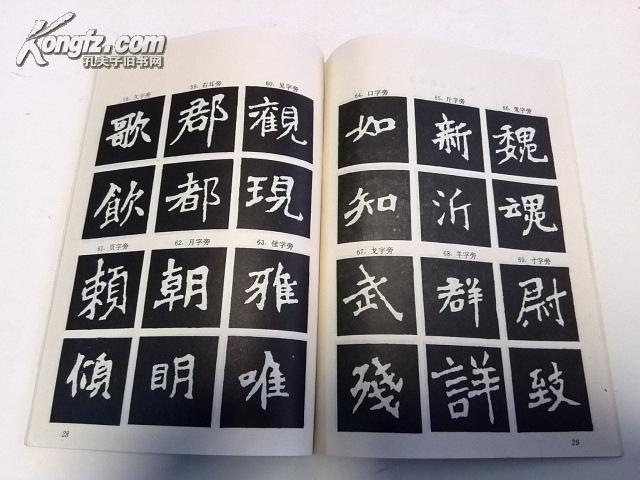 Kongfz.com
孔夫子旧书网
58. 欠字旁 59. 右耳旁 60. 见字旁
歌 郡 觀
飲 都 現
61. 页字旁 62. 月字旁 63. 隹字旁
頼 朝 雅
傾 明 唯
28
64. 口字旁 65. 斤字旁 66. 鬼字旁
如 新 魏
知 沂 魂
67. 戈字旁 68. 羊字旁 69. 寸字旁
武 群 尉
殘 詳 致
29